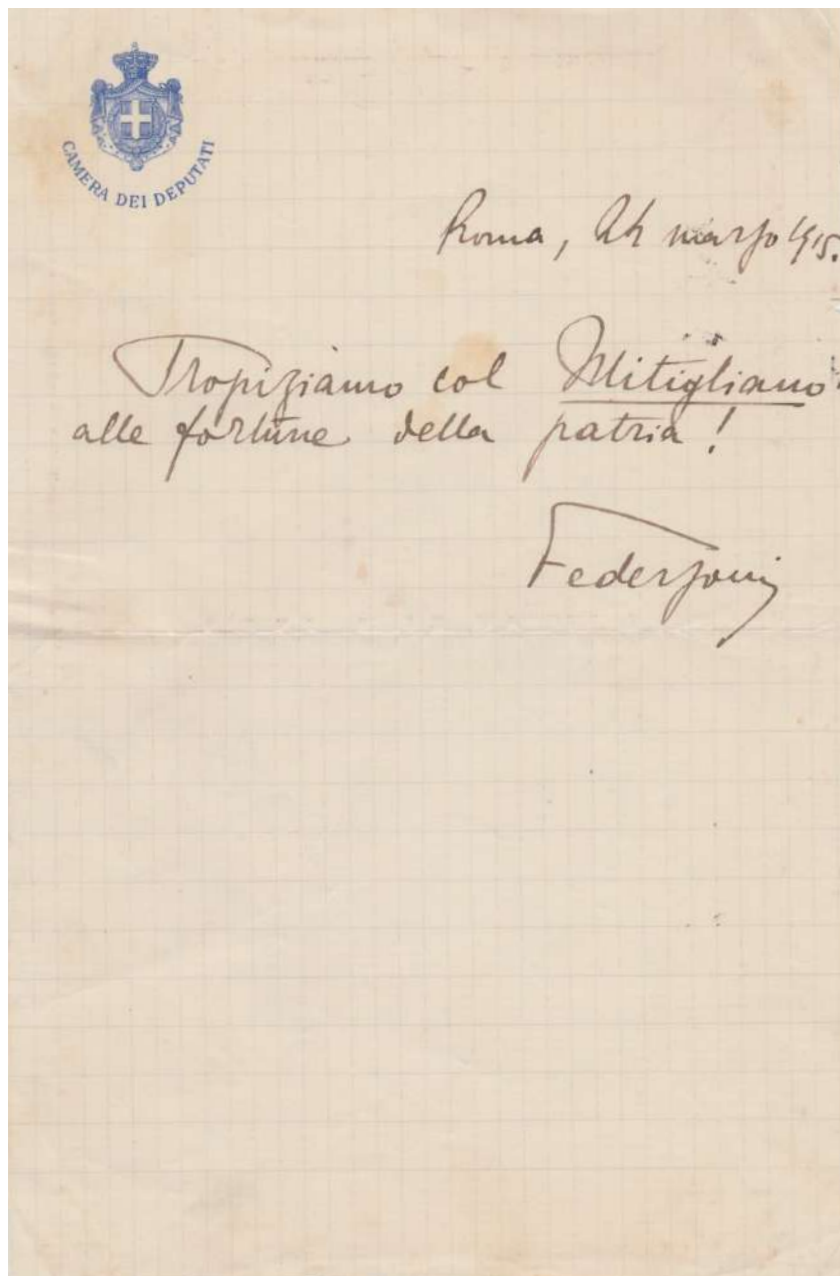 CAMERA DEI DEPUTATI
Roma, 24 marzo 1915.
Propiziamo col Mitigliano
alle fortune della patria!
Federzoni